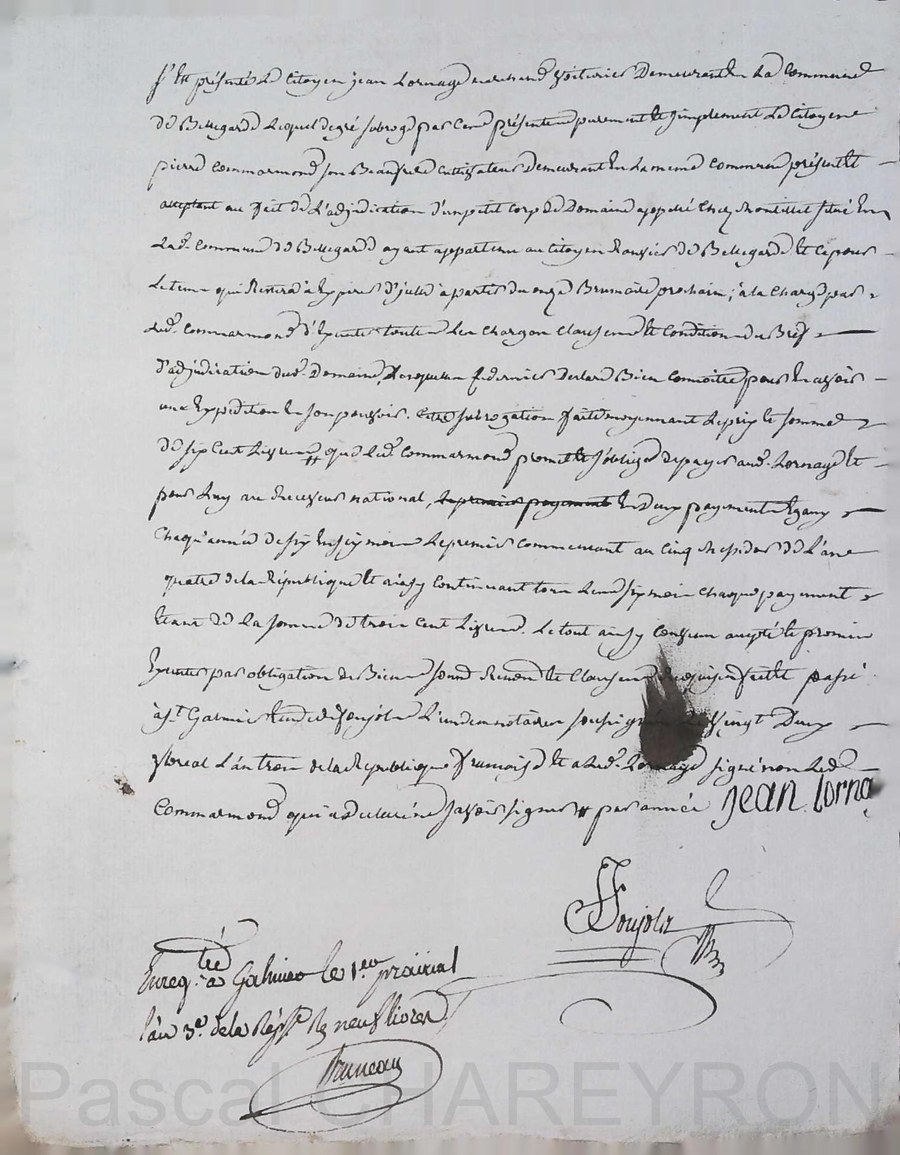 S'est présenté le Citoyen jean Lornage marchand voiturier demeurant en la Commune
de Bellegarde lequel de gré subroge par cene présentene purement et simplement le Citoyene
pierre Commarmond son Beaufrere Cultivateur demeurant en la meme Commune présent et
acceptant au fait de L'adjudication d'un petit Corp de Domaine appellé Chez Montillet situé en
Lad. Commune de Bellegarde ayant appartenu au Citoyen Ransier de Bellegarde et ce pour
Le tems qui Restera à Expirer d'jcelle à partir du onze Brumaire prochain ; à la Charge par
led. Commarmond d'Executer toutes les Charges Clauses et Condition du Bref
d'adjudication dud. Domaine, Lesquelles Ce dernier declare Bien Connoitre pour en avoir
une Expédition en son pouvoir. Cette subrogation faite moyennant le prix et somme
de six Cent Livres # que led. Commarmond promet et s'oblige de payer aud. Lornage et
pour Luy au Receveur national, le premier payement En Deux payements Egaux
Chaqu'année de six En six mois Le premier Commencant au Cinq Messidor de L'ane
quatre de la République et ainsy Continuant tous Les six mois Chaque payement
étant de la somme de trois Cent Livres. Le tout ainsy Convenu accepté et promis
Executer par obligation de Biens soumis Renon. et Clauses Requises fait et passé
à St. Galmier Etude de Soujol L'un des notaires soussignés le vingt Deux
floreal L'an trois de la République française et a Led. Lornage signé non Led.
Commarmond qui a declaré ne savoir signer # par année jean lorna
Soujol
Enreg.té à Galmier le 1.er prairial
l'an 3.e de la Rép. R neuf livres
Bruneau
Pascal CHAREYRON